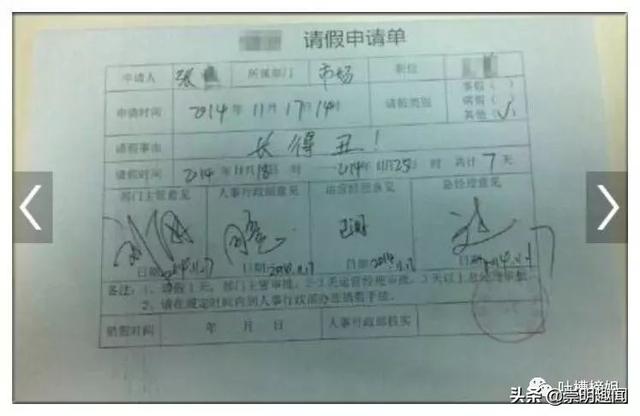 请假申请单
申请人 张 所属部门 市场 职位
申请时间 2014年11月17日14时 请假类别 事假( ) 病假( ) 其他(√)
请假事由 长得丑!
请假时间 2014年11月18日 时 2014年11月25日 时 共计 7 天
部门主管意见 人事行政部意见 运营经理意见 总经理意见
日期:2014.11.17 日期:2014.11.17 日期:2014.11.17 日期:2014.11.17
备注:1、请假1天,部门主管审批,2-3天运营经理审批,3天以上总经理审批
2、请在规定时间内到人事行政部办理请假手续。
销假时间 年 月 日 人事行政部核实
吐槽榜姐
头条@崇明趣闻